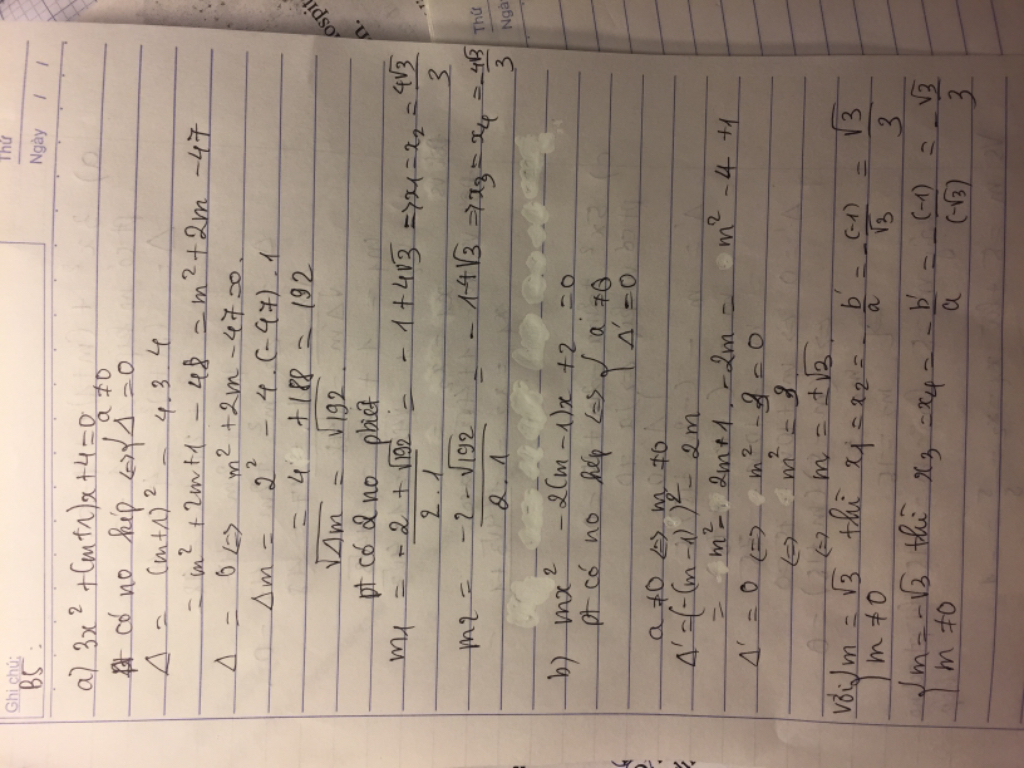 Thứ
Ngày
Ghi chú:
B5:
a) 3x² + (m+1)x + 4 = 0
pt có no kép <=> { a ≠ 0
Δ = 0
Δ = (m+1)² - 4.3.4
= m² + 2m + 1 - 48 = m² + 2m - 47
Δ = 0 <=> m² + 2m - 47 = 0.
Δm = 2² - 4.(-47).1
= 4 + 188 = 192
√Δm = √192
pt có 2 no pbiệt
m1 = -2 + √192 / 2.1 = -1 + 4√3 => x1 = x2 = -4√3 / 3
m2 = -2 - √192 / 2.1 = -1 + √3 => x3 = x4 = -4√3 / 3
b) mx² - 2(m-1)x + 2 = 0
pt có no kép <=> { a ≠ 0
Δ' = 0
a ≠ 0 <=> m ≠ 0
Δ' = [-(m-1)]² - 2m
= m² - 2m + 1 - 2m = m² - 4 + 1
Δ' = 0 <=> m² - 3 = 0
<=> m² = 3
<=> m = ±√3
với { m = √3 thì x1 = x2 = -b'/a = -(-1)/√3 = √3/3
m ≠ 0
{ m = -√3 thì x3 = x4 = -b'/a = -(-1)/(-√3) = -√3/3
m ≠ 0